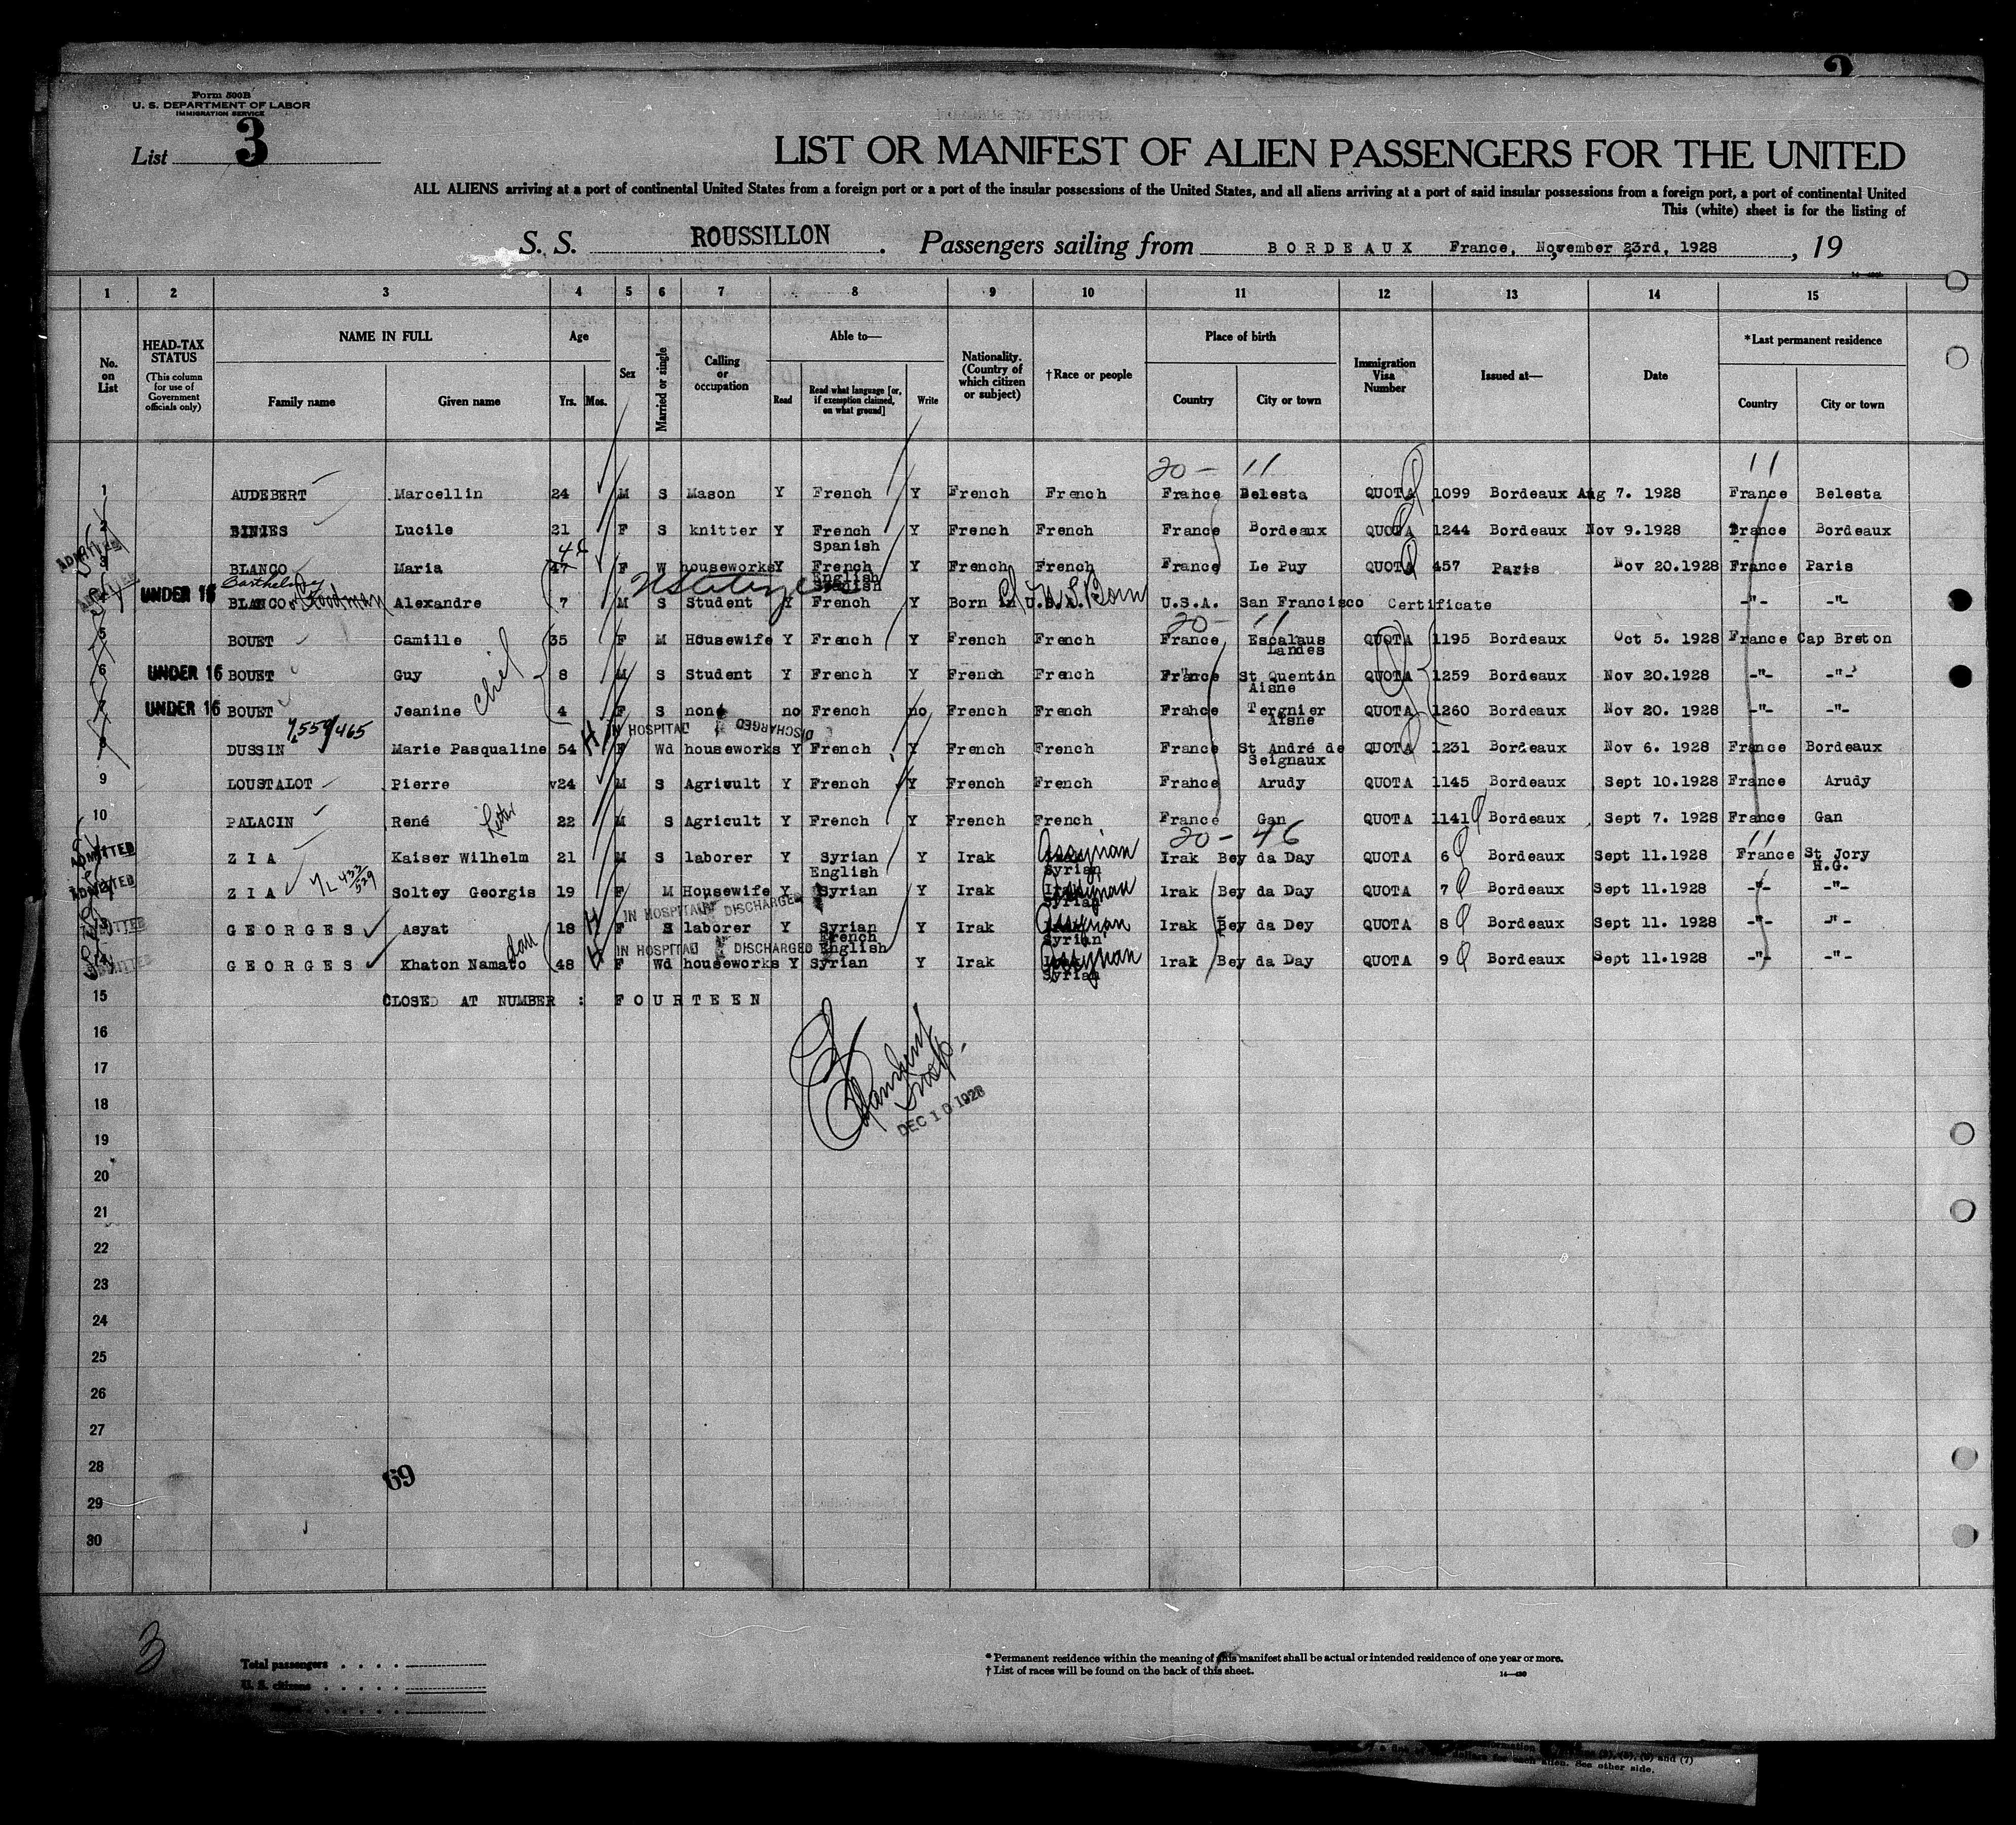 Form 500B
U. S. DEPARTMENT OF LABOR
IMMIGRATION SERVICE
List 3
LIST OR MANIFEST OF ALIEN PASSENGERS FOR THE UNITED
ALL ALIENS arriving at a port of continental United States from a foreign port or a port of the insular possessions of the United States, and all aliens arriving at a port of said insular possessions from a foreign port, a port of continental United
This (white) sheet is for the listing of
S. S. ROUSSILLON . Passengers sailing from BORDEAUX France, November 23rd, 1928 , 19
1 2 3 4 5 6 7 8 9 10 11 12 13 14 15
No. on List
HEAD-TAX STATUS (This column for use of Government officials only)
NAME IN FULL
Family name Given name
Age
Yrs. Mos.
Sex
Married or single
Calling or occupation
Able to—
Read Read what language [or, if exemption claimed, on what ground] Write
Nationality. (Country of which citizen or subject)
†Race or people
Place of birth
Country City or town
Immigration Visa Number
Issued at—
Date
*Last permanent residence
Country City or town
20 - 11 11
1 AUDEBERT Marcellin 24 M S Mason Y French Y French French France Belesta QUOTA 1099 Bordeaux Aug 7. 1928 France Belesta
2 BINIES Lucile 21 F S knitter Y French Spanish Y French French France Bordeaux QUOTA 1244 Bordeaux Nov 9.1928 France Bordeaux
ADMITTED 3 BLANCO Maria 47 F W houseworks Y French English Y French French France Le Puy QUOTA 457 Paris Nov 20.1928 France Paris
UNDER 16 BLANCO Barthelmy Goodman Alexandre 7 M S Student Y Spanish French Y Born in U.S.A. U.S. Born U.S.A. San Francisco Certificate -"- -"-
20- 11
5 BOUET Camille 35 F M Housewife Y French Y French French France Escalaus Landes QUOTA 1195 Bordeaux Oct 5. 1928 France Cap Breton
6 UNDER 16 BOUET Guy 8 M S Student Y French Y French French France St Quentin Aisne QUOTA 1259 Bordeaux Nov 20.1928 -"- -"-
7 UNDER 16 BOUET Jeanine 4 F S none no French no French French France Tergnier Aisne QUOTA 1260 Bordeaux Nov 20. 1928 -"- -"-
IN HOSPITAL DISCHARGED
8 DUSSIN Marie Pasqualine 54 F Wd houseworks Y French Y French French France St André de Seignaux QUOTA 1231 Bordeaux Nov 6. 1928 France Bordeaux
9 LOUSTALOT Pierre 24 M S Agricult Y French Y French French France Arudy QUOTA 1145 Bordeaux Sept 10.1928 France Arudy
10 PALACIN René 22 M S Agricult Y French Y French French France Gan QUOTA 1141 Bordeaux Sept 7. 1928 France Gan
20 - 46 11
ADMITTED ZIA Kaiser Wilhelm 21 M S laborer Y Syrian English Y Irak Assyrian Syrian Irak Bey da Day QUOTA 6 Bordeaux Sept 11.1928 France St Jory H.G.
ADMITTED ZIA Soltey Georgis 19 F M Housewife Y Syrian Y Irak Assyrian Syrian Irak Bey da Day QUOTA 7 Bordeaux Sept 11.1928 -"- -"-
IN HOSPITAL DISCHARGED
ADMITTED GEORGES Asyat 18 F S laborer Y Syrian French English Y Irak Assyrian Syrian Irak Bey da Dey QUOTA 8 Bordeaux Sept 11. 1928 -"- -"-
IN HOSPITAL DISCHARGED
ADMITTED GEORGES Khaton Namato 48 F Wd houseworks Y Syrian Y Irak Assyrian Syrian Irak Bey da Day QUOTA 9 Bordeaux Sept 11.1928 -"- -"-
15 CLOSED AT NUMBER : FOURTEEN
16
17
18
DEC 10 1928
19
20
21
22
23
24
25
26
27
28
69
29
30
3
Total passengers
U. S. citizens
* Permanent residence within the meaning of this manifest shall be actual or intended residence of one year or more.
† List of races will be found on the back of this sheet.
dollars for each alien. See other side.